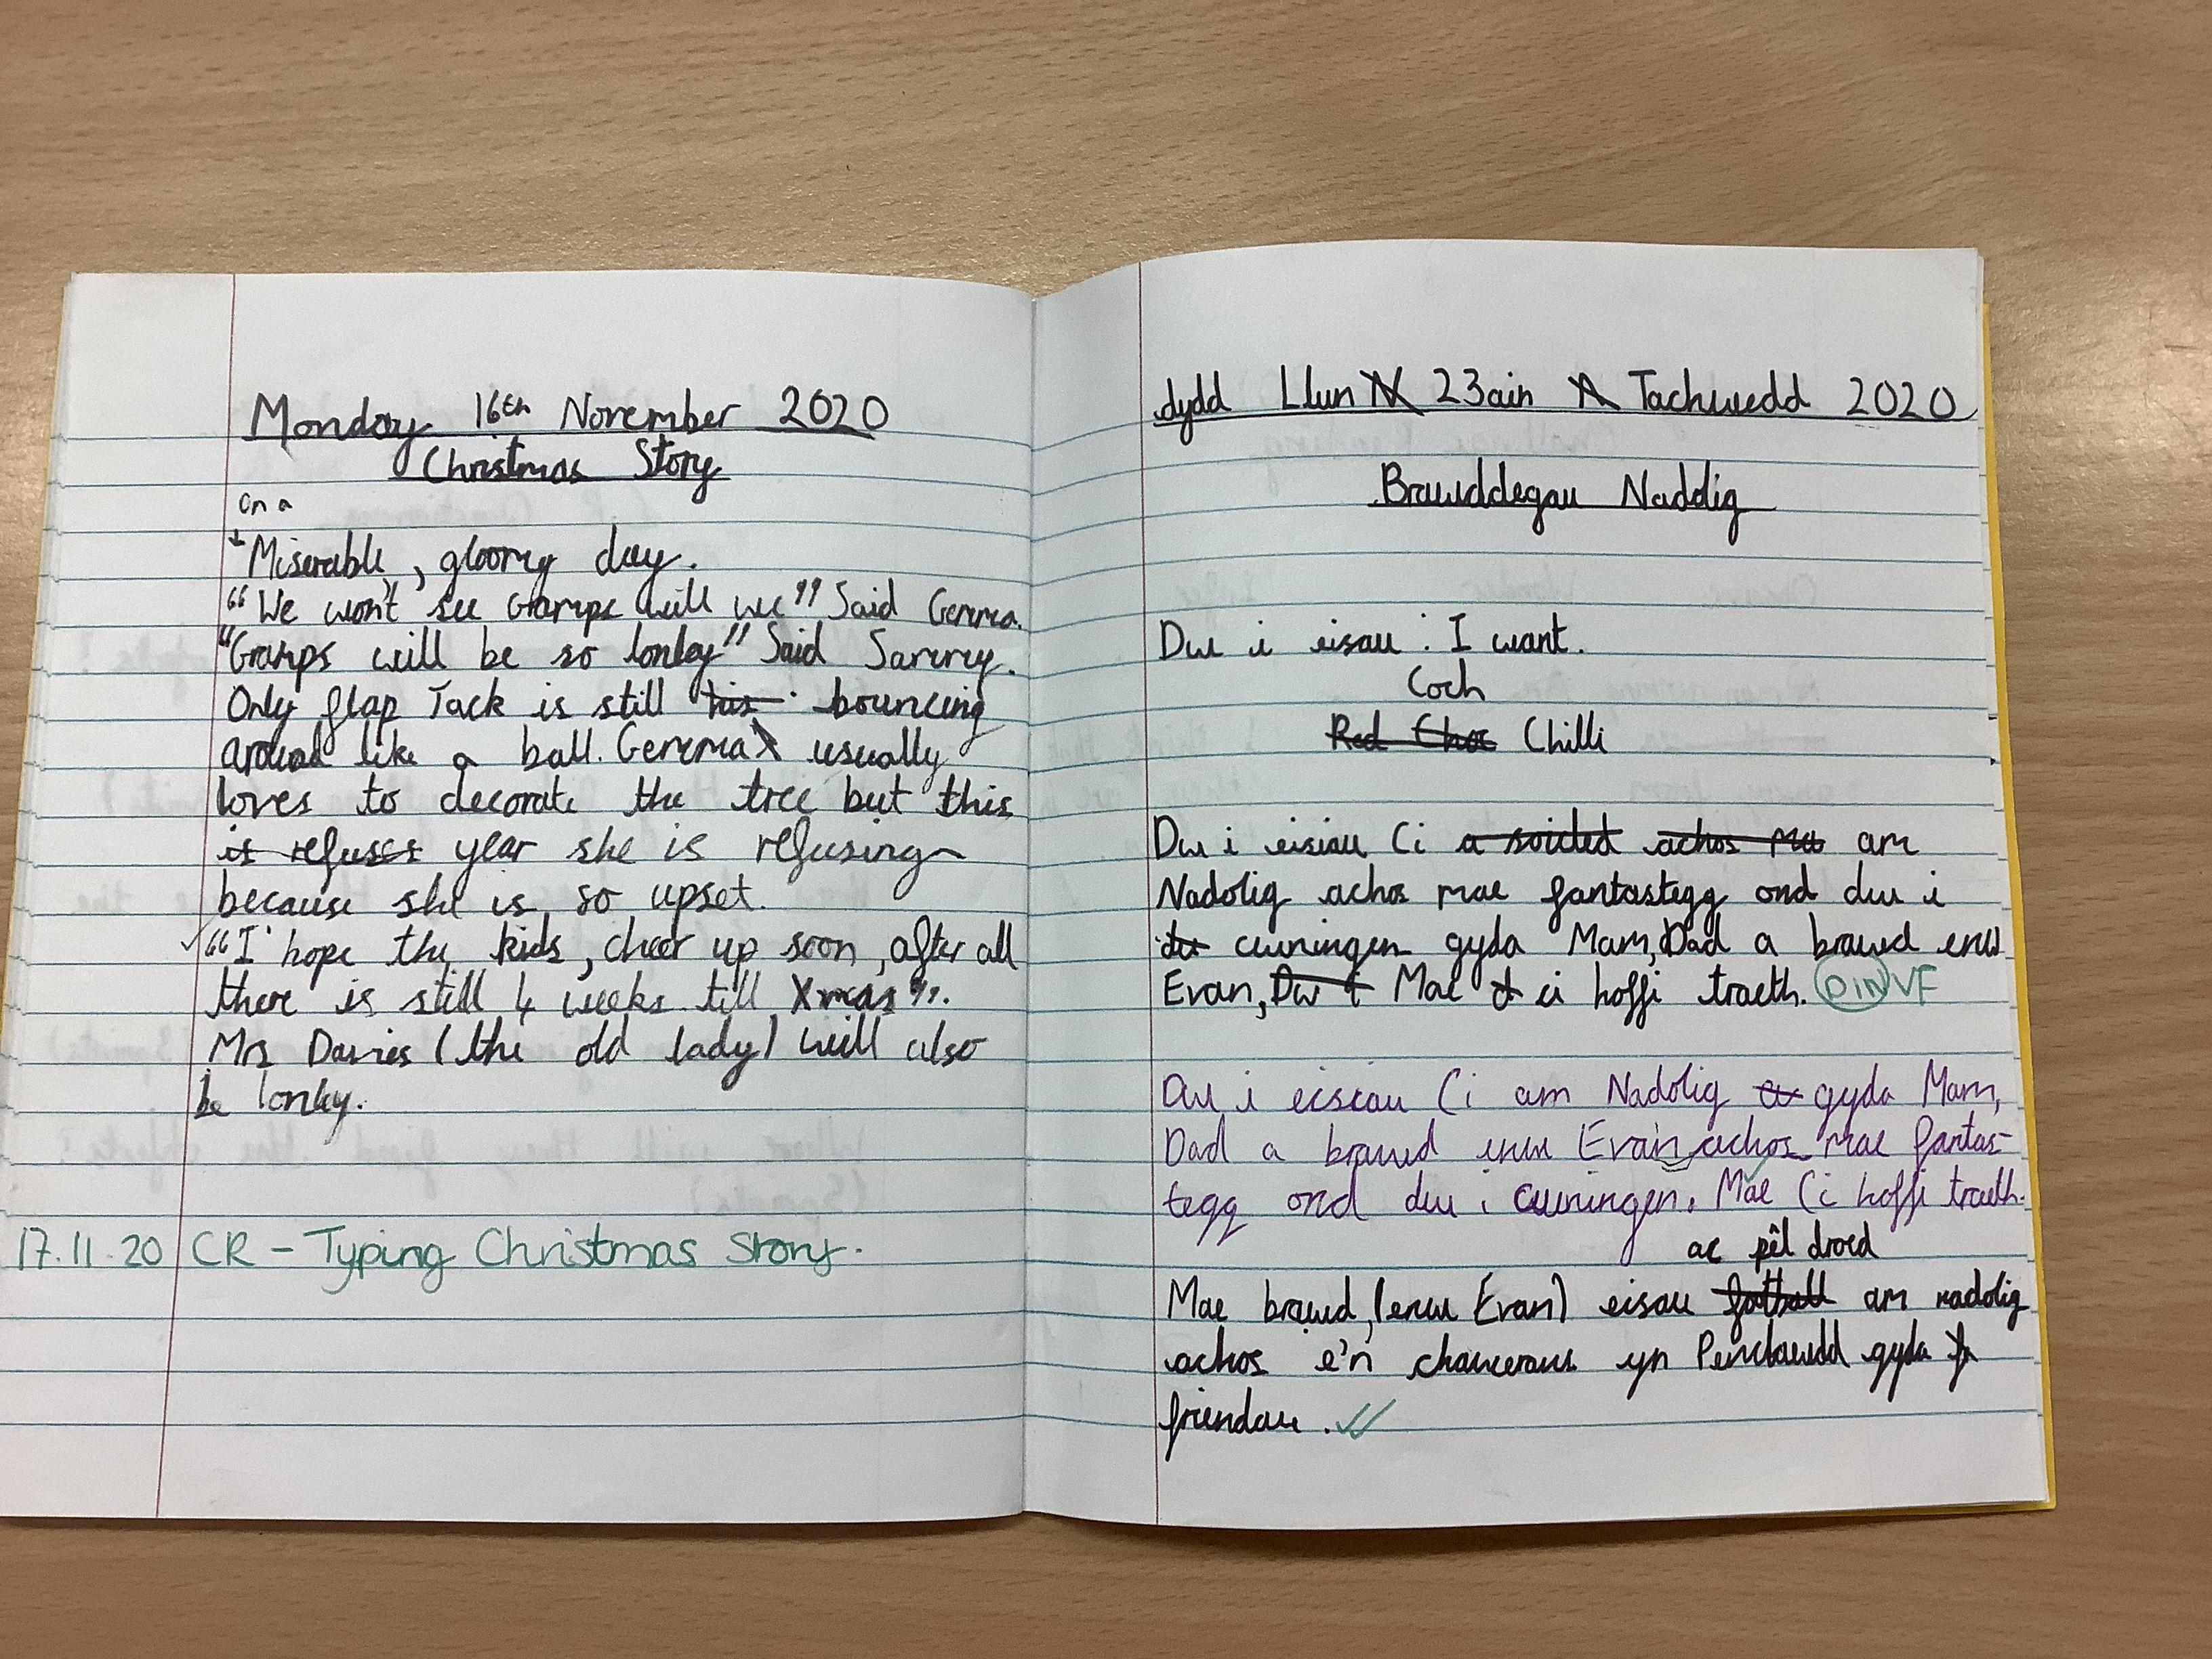 Monday 16th November 2020
Christmas Story
on a
Miserable, gloomy day.
"We won't see Gramps will we" Said Gemma.
"Gramps will be so lonley" Said Sammy.
Only flap Jack is still his bouncing
around like a ball. Gemma usually
loves to decorate the tree but this
is refuses year she is refusing
because she is so upset.
"I hope the kids, cheer up soon, after all
there is still 4 weeks till Xmas".
Mrs Davies (the old lady) will also
be lonley.
17.11.20 CR - Typing Christmas Story.
dydd Llun N 23ain A Tachwedd 2020
Brawddegau Naddlig
Dw i eisau : I want.
Coch
Red Choc Chilli
Dw i eisiau Ci a achos ma am
Nadolig achos mae fantastegg ond dw i
dw cwningen gyda Mam, Dad a brawd enw
Evan, Dw i Mae ci hoffi traeth. PIN VF
Dw i eisiau Ci am Nadolig a gyda Mam,
Dad a brawd enw Evan achos mae fantas-
tegg ond dw i cwningen. Mae Ci hoffi traeth.
ac pêl droed
Mae brawd, (enw Evan) eisau football am nadolig
achos e'n chaweraus yn Penclawdd gyda f
friendau.